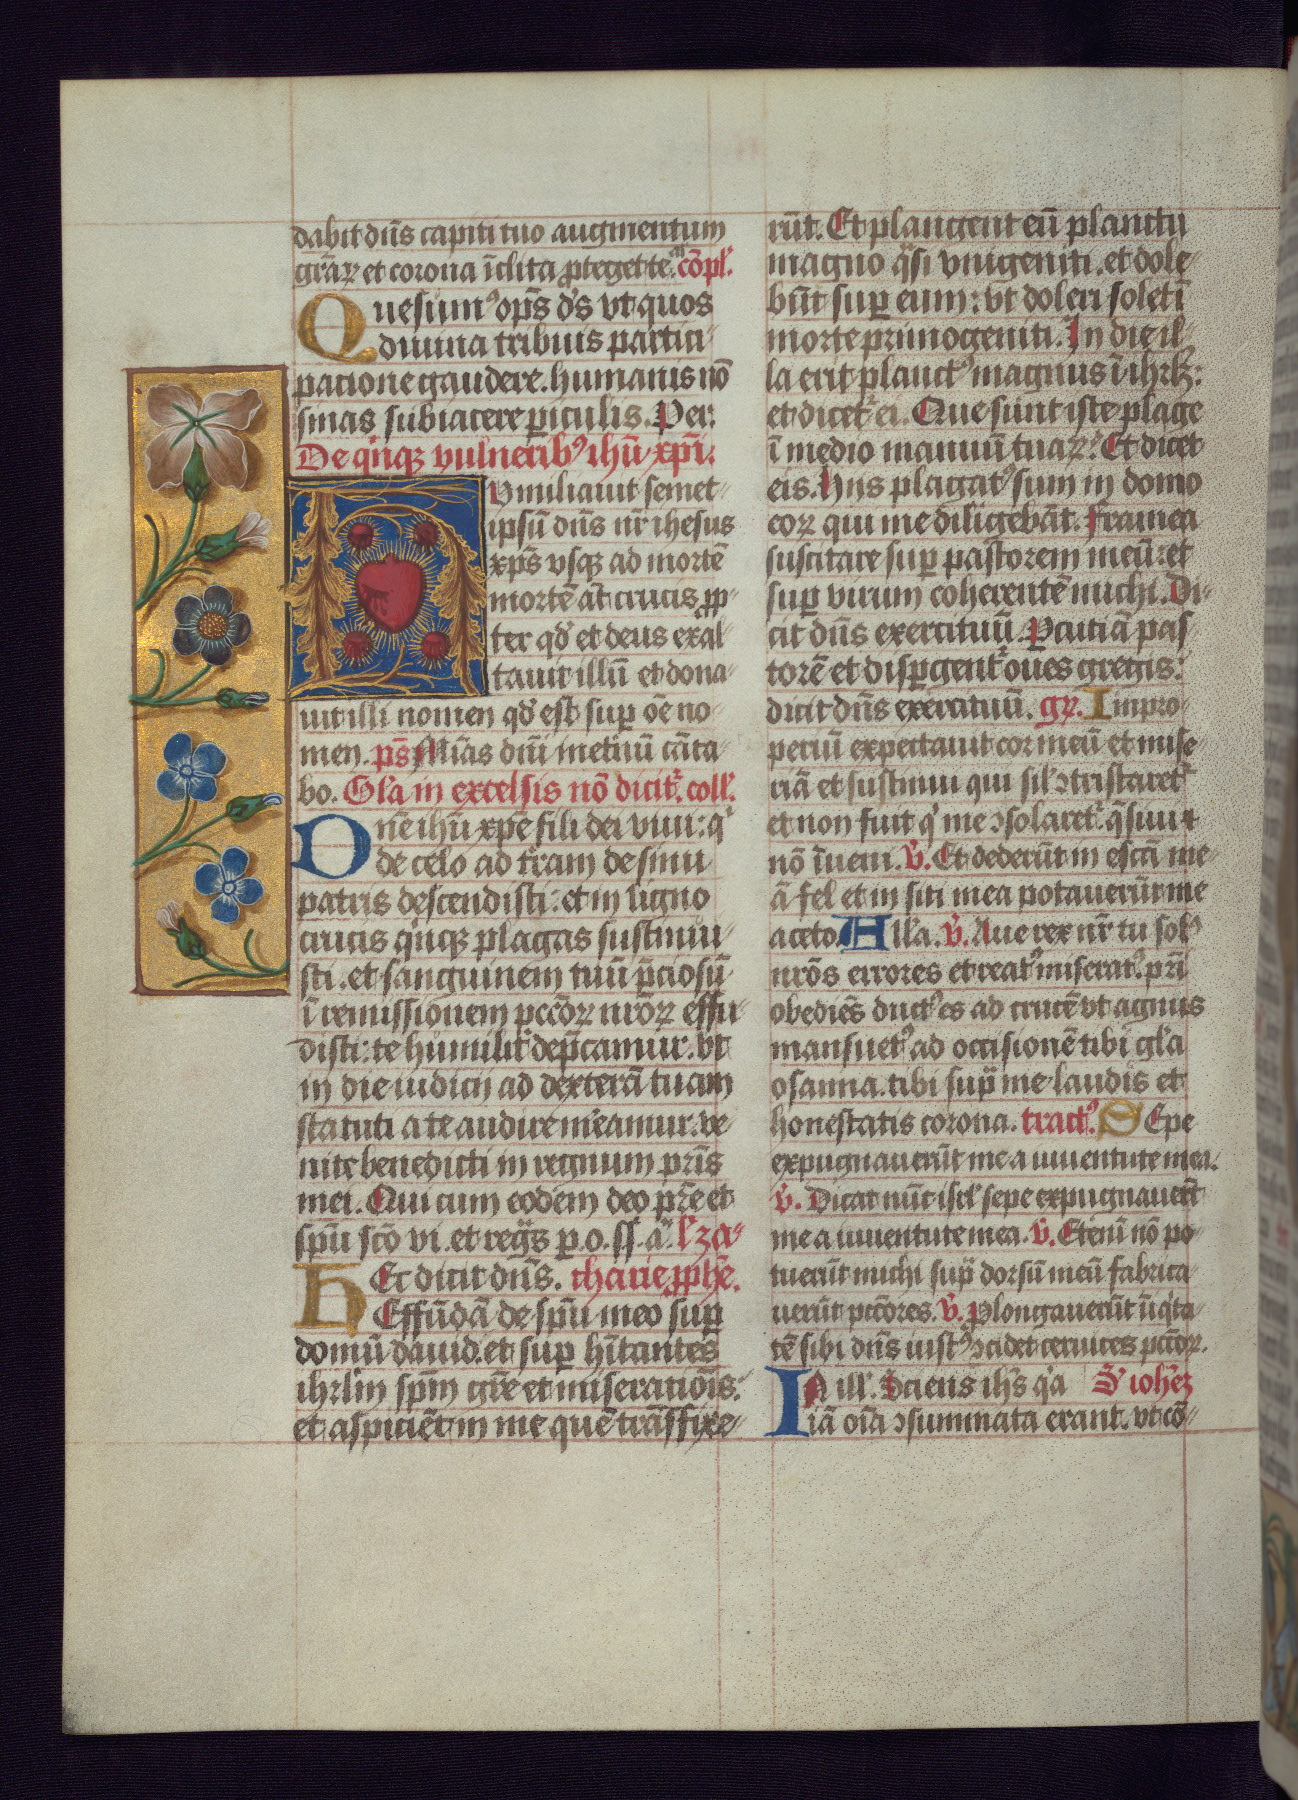 dabit dn̄s capiti tuo augmentum
grāꝝ et corona īclita ꝓteget te. cōpl'.
Quesumꝰ om̄ps d's vt quos
diuina tribuis partici-
patione gaudere. humanis nō
sinas subiacere ꝑiculis. Per:
De qi̓nqꝫ vulneribꝰ ihū xp̄i.
Humiliauit semet-
ipsū dn̄s nr̄ ihesus
xp̄s vsqꝫ ad mortē
mortē āt crucis ꝓp-
ter qd' et deus exal-
tauit illū et dona-
uit illi nomen qd' est sup̄ oē no-
men. ps̄ Mīas dn̄i inet'nū cāta-
bo. Gl'a in excelsis nō dicit᷑. coll'.
Dn̄e ihū xp̄e fili dei viui: q'
de celo ad t'ram de sinu
patris descendisti: et in ligno
crucis qi̓nqꝫ plagas sustinui-
sti. et sanguinem tuū p̄ciosū
ī remissionem pcc̄oꝝ nr̄oꝝ effu-
disti: te humilit᷑ dep̄camur. vt
in die iudicij ad dexterā tuam
statuti a te audire m'eamur. ve-
nite benedicti in regnum pr̄is
mei. Qui cum eodem deo pr̄e et
sp̄u sc̄o vi. et regͣs p. o. ss. a'. l'za-
Hec dicit dn̄s. charie ꝓph̄e.
Effūdā de sp̄u meo sup̄
domū dauid. et sup̄ hītantes
ihrl'm sp̄m gr̄e et miseratiōis:
et aspiciēt in me quē trāsfixe-
rūt. Et plangent eū planctu
magno qͣsi vnigeniti. et dole-
būt sup̄ eum: vt doleri solet ī
morte primogeniti. In die il-
la erit planctꝰ magnus ī ihrl'z:
et dicet᷑ ei. Que sunt iste plage
ī medio manuū tuaꝝ? Et dicet
eis. Hijs plagatꝰ sum in domo
eoꝝ qui me diligebāt. Framea
suscitare sup̄ pastorem meū: et
sup̄ virum coherentē michi. Di-
cit dn̄s exercituū. Ꝑcutiā pas-
torē et disp̄gent᷑ oues gregis:
dicit dn̄s exercituū. gr̄. Impro-
periū expectauit cor meū et mise-
riā et sustinui qui sil' ↄtristaret᷑
et non fuit q' me ↄsolaret᷑. qͣsiui ⁊
nō īueni. v̄. Et dederūt in escā me-
ā fel et in siti mea potauerūt me
aceto. All'a. v̄. Aue rex nr̄ tu solꝰ
nr̄os errores et reatꝰ miseratꝰ. pr̄i
obediēs ductꝰ es ad crucē vt agnus
mansuetꝰ ad occisionē tibi gl'a
osanna. tibi sup̄me laudis et
honestatis corona. tractꝰ. Sepe
expugnauerūt me a iuuentute mea.
v̄. Dicat nūc isrl' sepe expugnauer̄t
me a iuuentute mea. v̄. Etenī nō po-
tuerūt michi sup̄ dorsū meū fabrica-
uerūt pcc̄ores. v̄. Ꝓlongauerūt īiqi̓ta-
tē sibi dn̄s iustꝰ ↄcidet ceruices pcc̄oꝝ.
In ill'. Sciens ih̄s qi̓a S' ioh̄ez
iā oīa ↄsummata erant. vt cō-